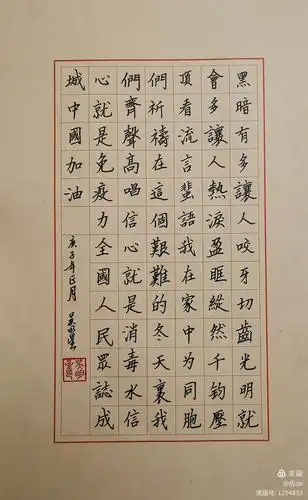 黑暗有多讓人咬牙切齒光明就
會多讓人熱淚盈眶縱然千鈞壓
頂看流言蜚語我在家中为同胞
們祈禱在這個艱難的冬天裏我
們齊聲高唱信心就是消毒水信
心就是免疫力全國人民眾誌成
城中國加油
庚子年正月
美篇
美篇号: 1294833